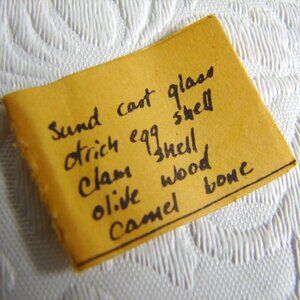 Sand cast glass
otrich egg shell
clam shell
olive wood
camel bone